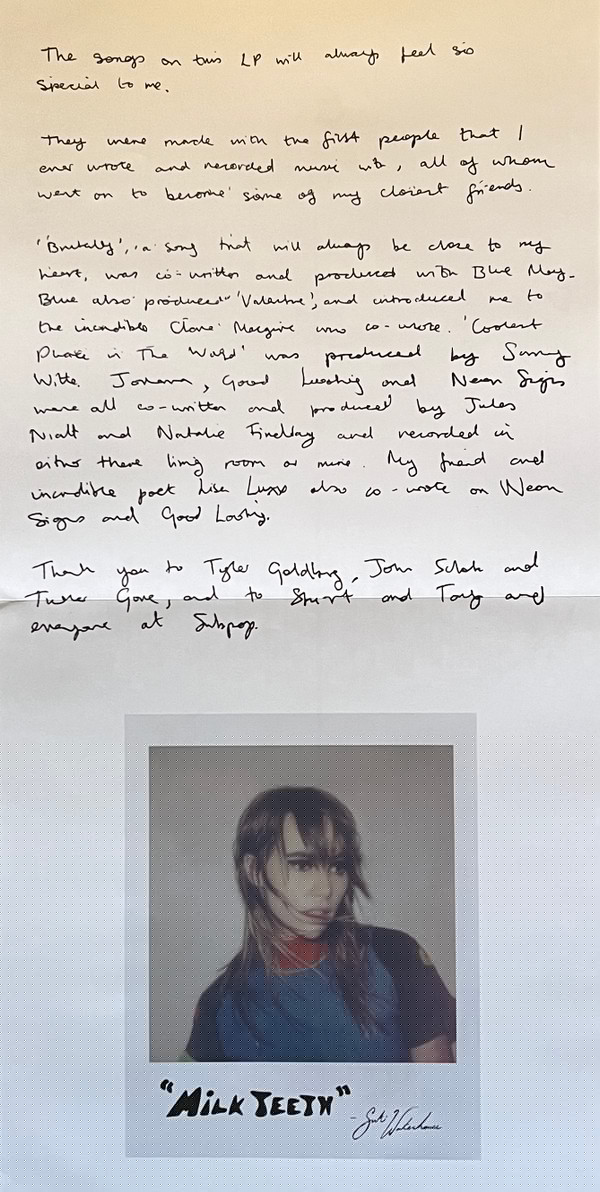 The songs on this LP will always feel so
special to me.
They were made with the first people that I
ever wrote and recorded music with, all of whom
went on to become some of my closest friends.
'Brutally', a song that will always be close to my
heart, was co-written and produced with Blue May.
Blue also produced 'Valentine', and introduced me to
the incredible Clare Maguire who co-wrote. 'Coolest
Place in The World' was produced by Sonny
Witte. Johanna, Good Looking and Neon Signs
were all co-written and produced by Jules
and Natalie Findlay and recorded in
either there living room or mine. My friend and
incredible poet Lisa Luxx also co-wrote on Neon
Signs and Good Looking.
Thank you to Tyler Goldberg, John and
and to Stuart and Tony and
everyone at Subpop.
"MiLK TEETH"
- Suki Waterhouse